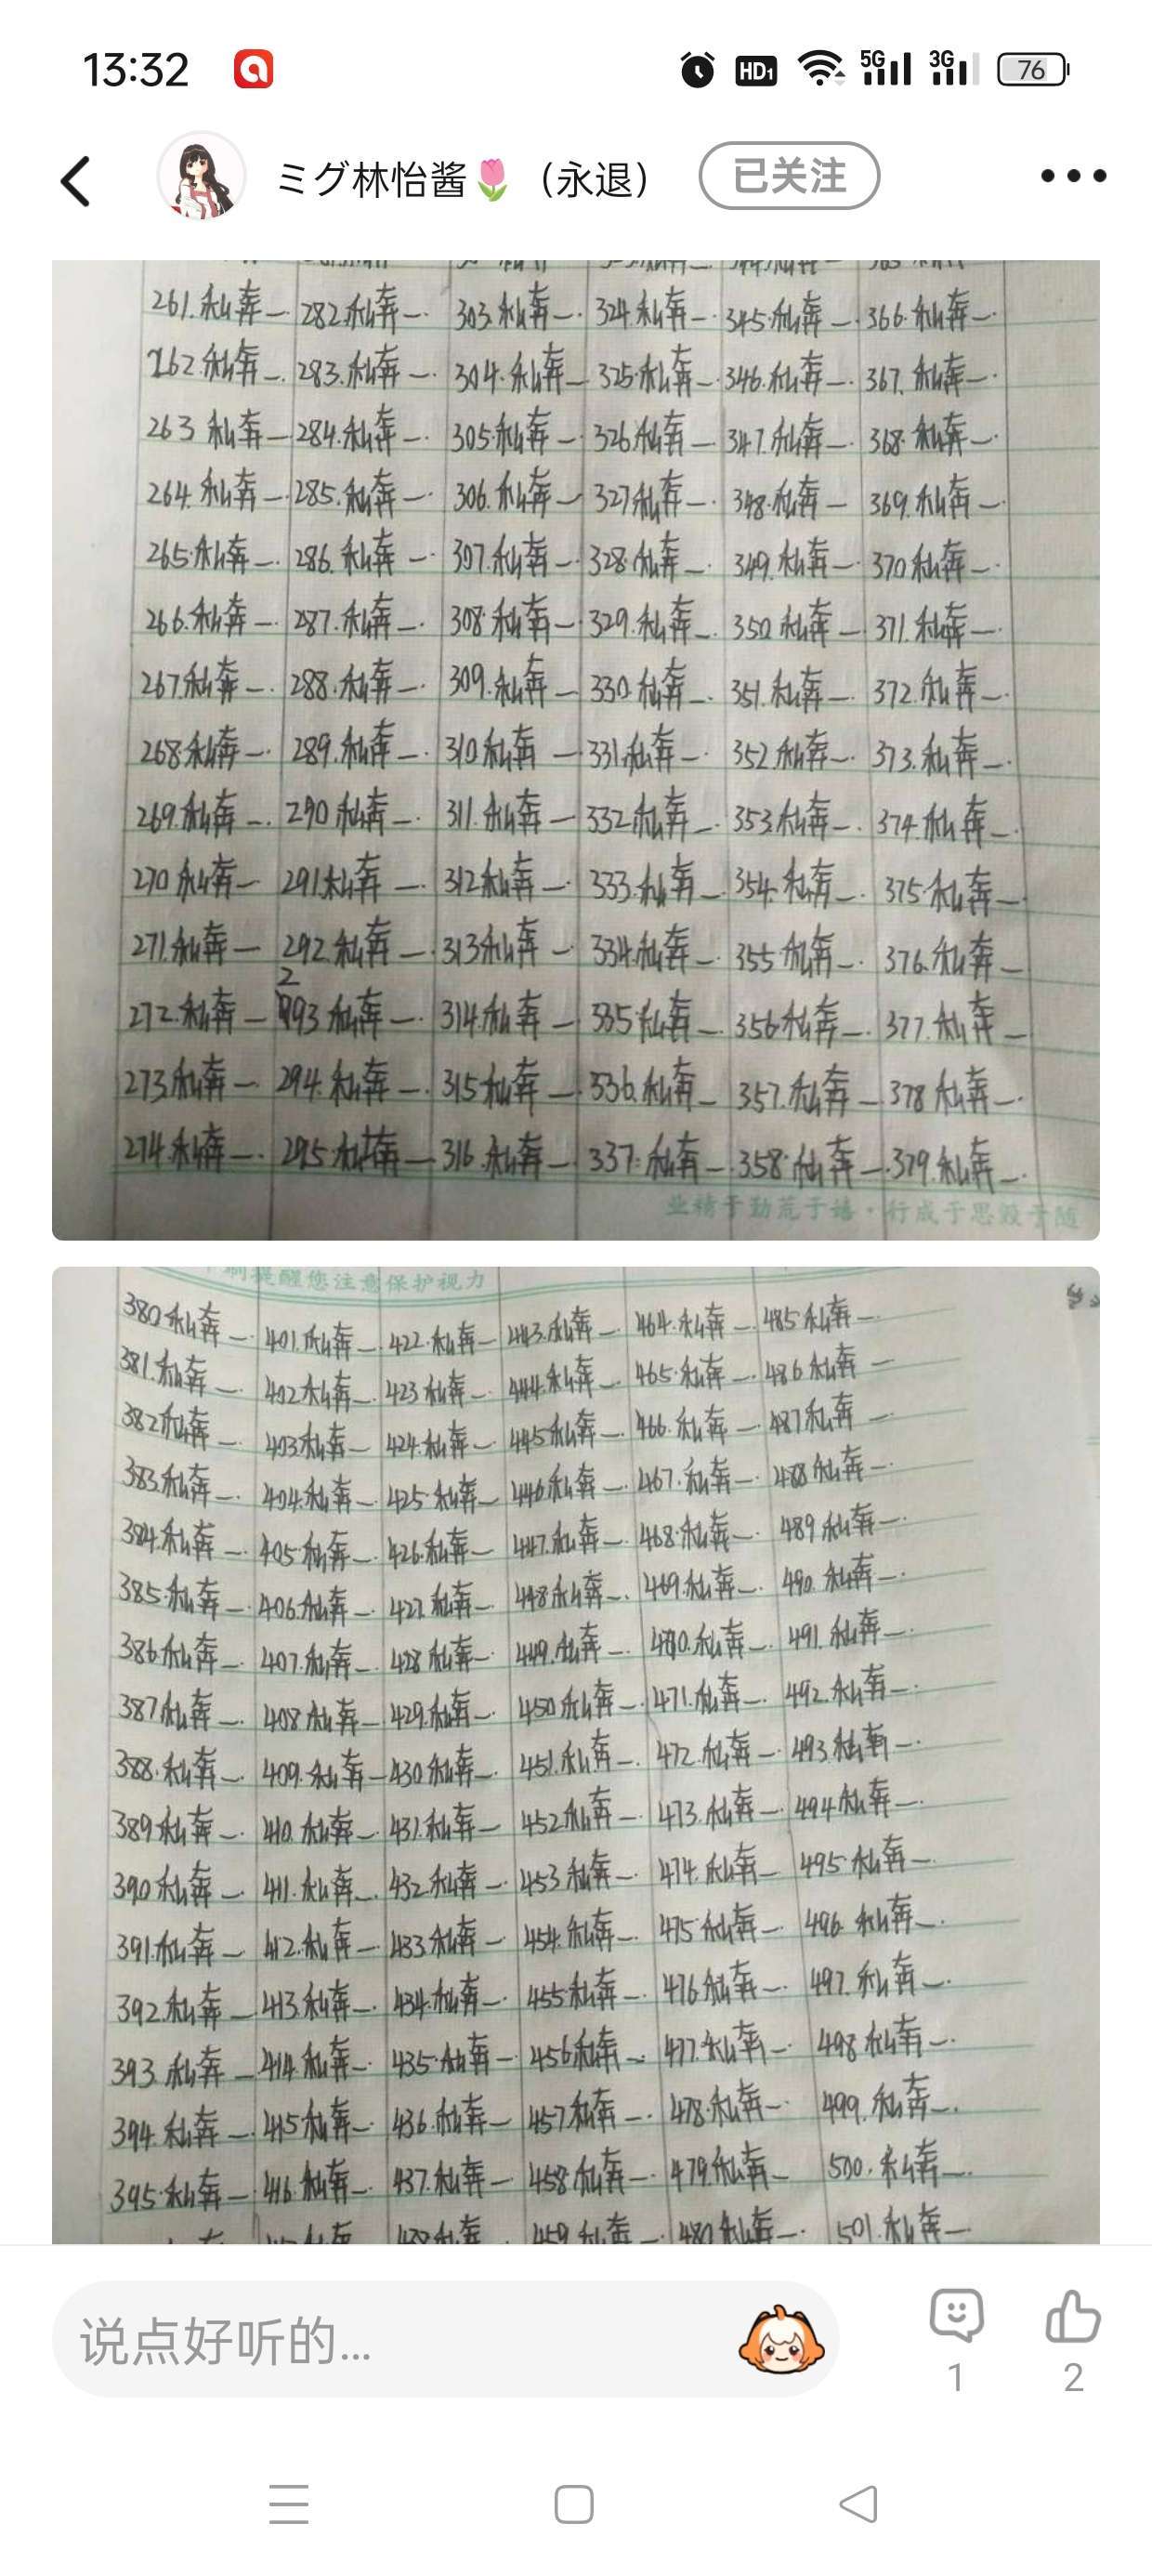 13:32 HD1 5G 3G 76
ミグ林怡酱🌷（永退） 已关注
261.私奔—. 282.私奔—. 303.私奔—. 324.私奔—. 345.私奔—. 366.私奔—.
262.私奔—. 283.私奔—. 304.私奔—. 325.私奔—. 346.私奔—. 367.私奔—.
263 私奔— 284.私奔—. 305.私奔—. 326.私奔—. 347.私奔—. 368.私奔—.
264.私奔—. 285.私奔—. 306.私奔—. 327.私奔—. 348.私奔— 369.私奔—.
265.私奔—. 286.私奔—. 307.私奔—. 328.私奔—. 349.私奔—. 370.私奔—.
266.私奔—. 287.私奔—. 308.私奔—. 329.私奔—. 350.私奔— 371.私奔—.
267.私奔—. 288.私奔—. 309.私奔— 330.私奔—. 351.私奔—. 372.私奔—.
268.私奔—. 289.私奔—. 310.私奔— 331.私奔—. 352.私奔—. 373.私奔—.
269.私奔—. 290.私奔—. 311.私奔— 332.私奔—. 353.私奔—. 374.私奔—.
270.私奔— 291.私奔—. 312.私奔—. 333.私奔—. 354.私奔—. 375.私奔—.
271.私奔— 292.私奔—. 313.私奔— 334.私奔—. 355.私奔—. 376.私奔—
272.私奔— 293.私奔—. 314.私奔— 335.私奔—. 356.私奔—. 377.私奔—
273.私奔— 294.私奔—. 315.私奔—. 336.私奔— 357.私奔— 378.私奔—.
274.私奔—. 295.私奔— 316.私奔— 337.私奔—. 358.私奔—. 379.私奔—.
业精于勤荒于嬉·行成于思毁于随
刷提醒您注意保护视力
380.私奔—. 401.私奔—. 422.私奔— 443.私奔—. 464.私奔—. 485.私奔—.
381.私奔—. 402.私奔—. 423.私奔—. 444.私奔—. 465.私奔—. 486.私奔—
382.私奔—. 403.私奔— 424.私奔—. 445.私奔—. 466.私奔—. 487.私奔—.
383.私奔—. 404.私奔—. 425.私奔— 446.私奔—. 467.私奔—. 488.私奔—.
384.私奔—. 405.私奔—. 426.私奔— 447.私奔—. 468.私奔—. 489.私奔—.
385.私奔—. 406.私奔—. 427.私奔— 448.私奔—. 469.私奔—. 490.私奔—.
386.私奔—. 407.私奔—. 428.私奔—. 449.私奔—. 470.私奔—. 491.私奔—.
387.私奔—. 408.私奔— 429.私奔—. 450.私奔—. 471.私奔—. 492.私奔—.
388.私奔—. 409.私奔— 430.私奔—. 451.私奔—. 472.私奔—. 493.私奔—.
389.私奔—. 410.私奔—. 431.私奔— 452.私奔—. 473.私奔—. 494.私奔—.
390.私奔—. 411.私奔—. 432.私奔—. 453.私奔—. 474.私奔— 495.私奔—.
391.私奔— 412.私奔— 433.私奔— 454.私奔—. 475.私奔—. 496.私奔—.
392.私奔— 413.私奔—. 434.私奔—. 455.私奔—. 476.私奔—. 497.私奔—.
393.私奔— 414.私奔—. 435.私奔—. 456.私奔—. 477.私奔—. 498.私奔—.
394.私奔—. 415.私奔—. 436.私奔— 457.私奔—. 478.私奔—. 499.私奔—.
395.私奔— 416.私奔—. 437.私奔— 458.私奔—. 479.私奔— 500.私奔—.
459.私奔—. 480.私奔—. 501.私奔—
说点好听的... 1 2